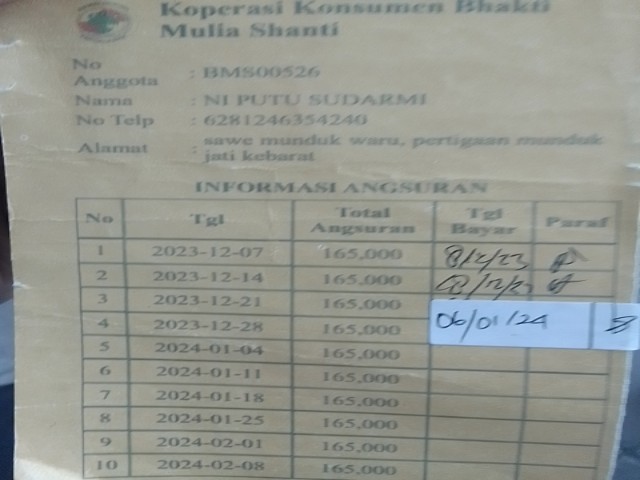 Koperasi Konsumen Bhakti
Mulia Shanti
No Anggota : BMS00526
Nama : NI PUTU SUDARMI
No Telp : 6281246354240
Alamat : sawe munduk waru, pertigaan munduk
jati kebarat
INFORMASI ANGSURAN
No Tgl Total Angsuran Tgl Bayar Paraf
1 2023-12-07 165,000 8/12/23
2 2023-12-14 165,000
3 2023-12-21 165,000
4 2023-12-28 165,000 06/01/24
5 2024-01-04 165,000
6 2024-01-11 165,000
7 2024-01-18 165,000
8 2024-01-25 165,000
9 2024-02-01 165,000
10 2024-02-08 165,000